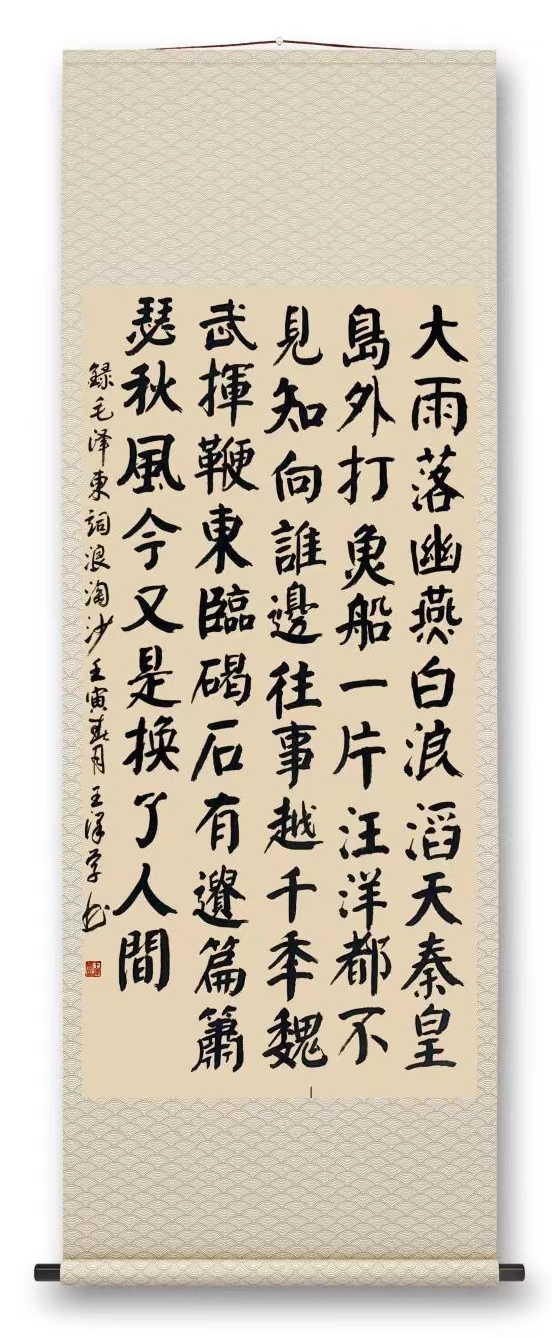 大雨落幽燕白浪滔天秦皇
島外打魚船一片汪洋都不
見知向誰邊往事越千秊魏
武揮鞭東臨碣石有遺篇簫
瑟秋風今又是換了人間
録毛泽東詞浪淘沙壬寅春月王泽学书